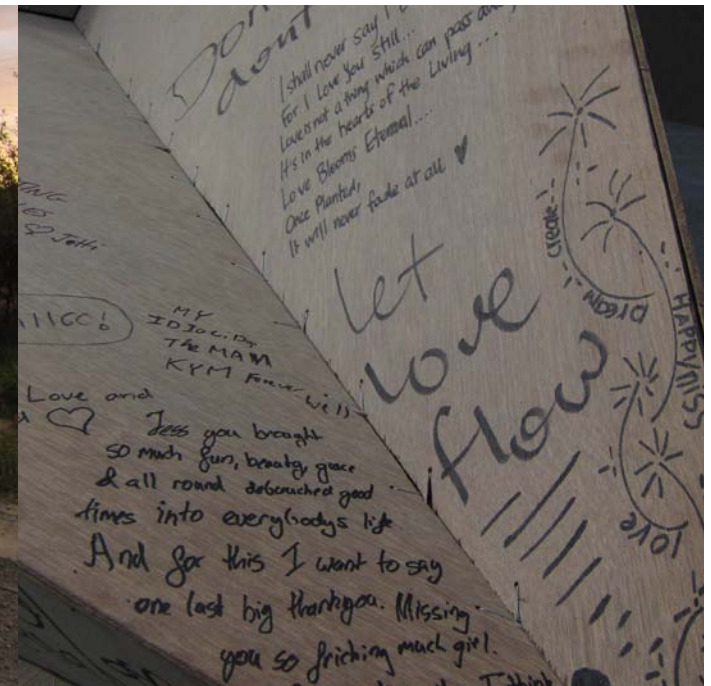 Don't
dout
I shall never say I
For I Love you Still...
Love is not a thing which can pass away
It's in the hearts of the Living...
Love Blooms Eternal....
Once Planted,
It will never fade at all ♥
let
love
flow
create
Dream
HAPPY/niss
love
Love and
MY
THE MAN
KYM Forever
Jess you brought
so much fun, beauty, grace
& all round debauched good
times into everybodys life
And for this I want to say
one last big thankyou. Missing
you so fricking much girl.
I think